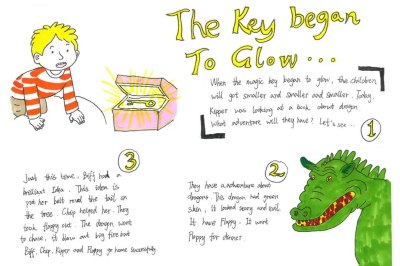 The Key began
To Glow...
When the magic key began to glow, the children
will get smaller and smaller and smaller. Today,
Kipper was looking at a book about dragon.
What adventure will they have? Let's see...
1
2
They have a adventure about
dragons. This dragon had green
skin, it looked scary and evil.
It have Floppy. It want
Floppy for dinner.
3
Just this time, Biff had a
brilliant idea. This idea is
put her belt round the tail on
the tree. Chip helped her. They
took floppy out. The dragon want
to chase, it blow out big fire but
Biff, Chip, Kipper and Floppy go home successfully.